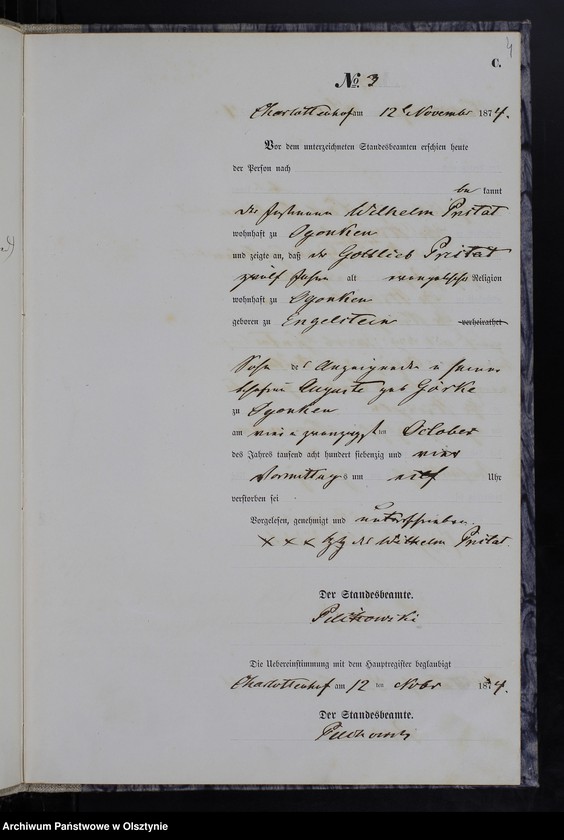 4
C.
No. 3
Charlottenhof am 12 November 1874.
Vor dem unterzeichneten Standesbeamten erschien heute
der Person nach
be kannt
der Wilhelm Pristat
wohnhaft zu Ogonken
und zeigte an, daß der Gottlieb Pristat
zwölf Jahre alt evangelischer Religion
wohnhaft zu Ogonken
geboren zu Engelstein verheirathet
Sohn des Anzeigenden u seiner
Ehefrau Auguste geb Görke
zu Ogonken
am ten October
des Jahres tausend acht hundert siebenzig und vier
Vormittags um elf Uhr
verstorben sei
Vorgelesen, genehmigt und unterschrieben.
x x x des Wilhelm Pristat
Der Standesbeamte.
Die Uebereinstimmung mit dem Hauptregister beglaubigt
Charlottenhof am 12 ten Nobr 1874.
Der Standesbeamte.
Archiwum Państwowe w Olsztynie